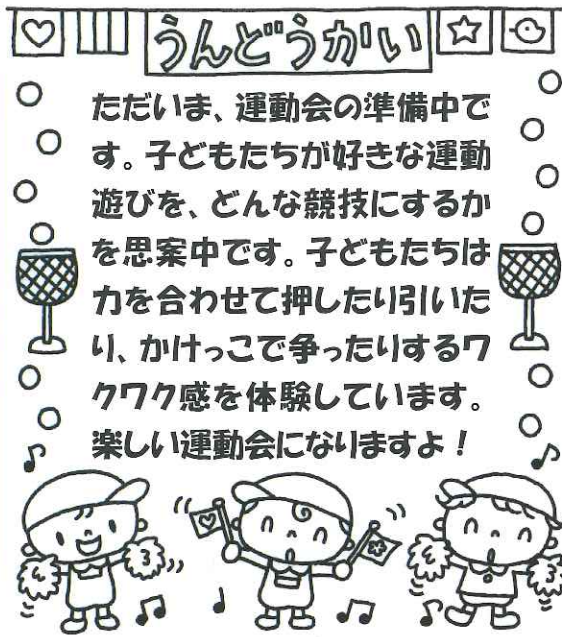 うんどうかい
ただいま、運動会の準備中で
す。子どもたちが好きな運動
遊びを、どんな競技にするか
を思案中です。子どもたちは
力を合わせて押したり引いた
り、かけっこで争ったりするワ
クワク感を体験しています。
楽しい運動会になりますよ！